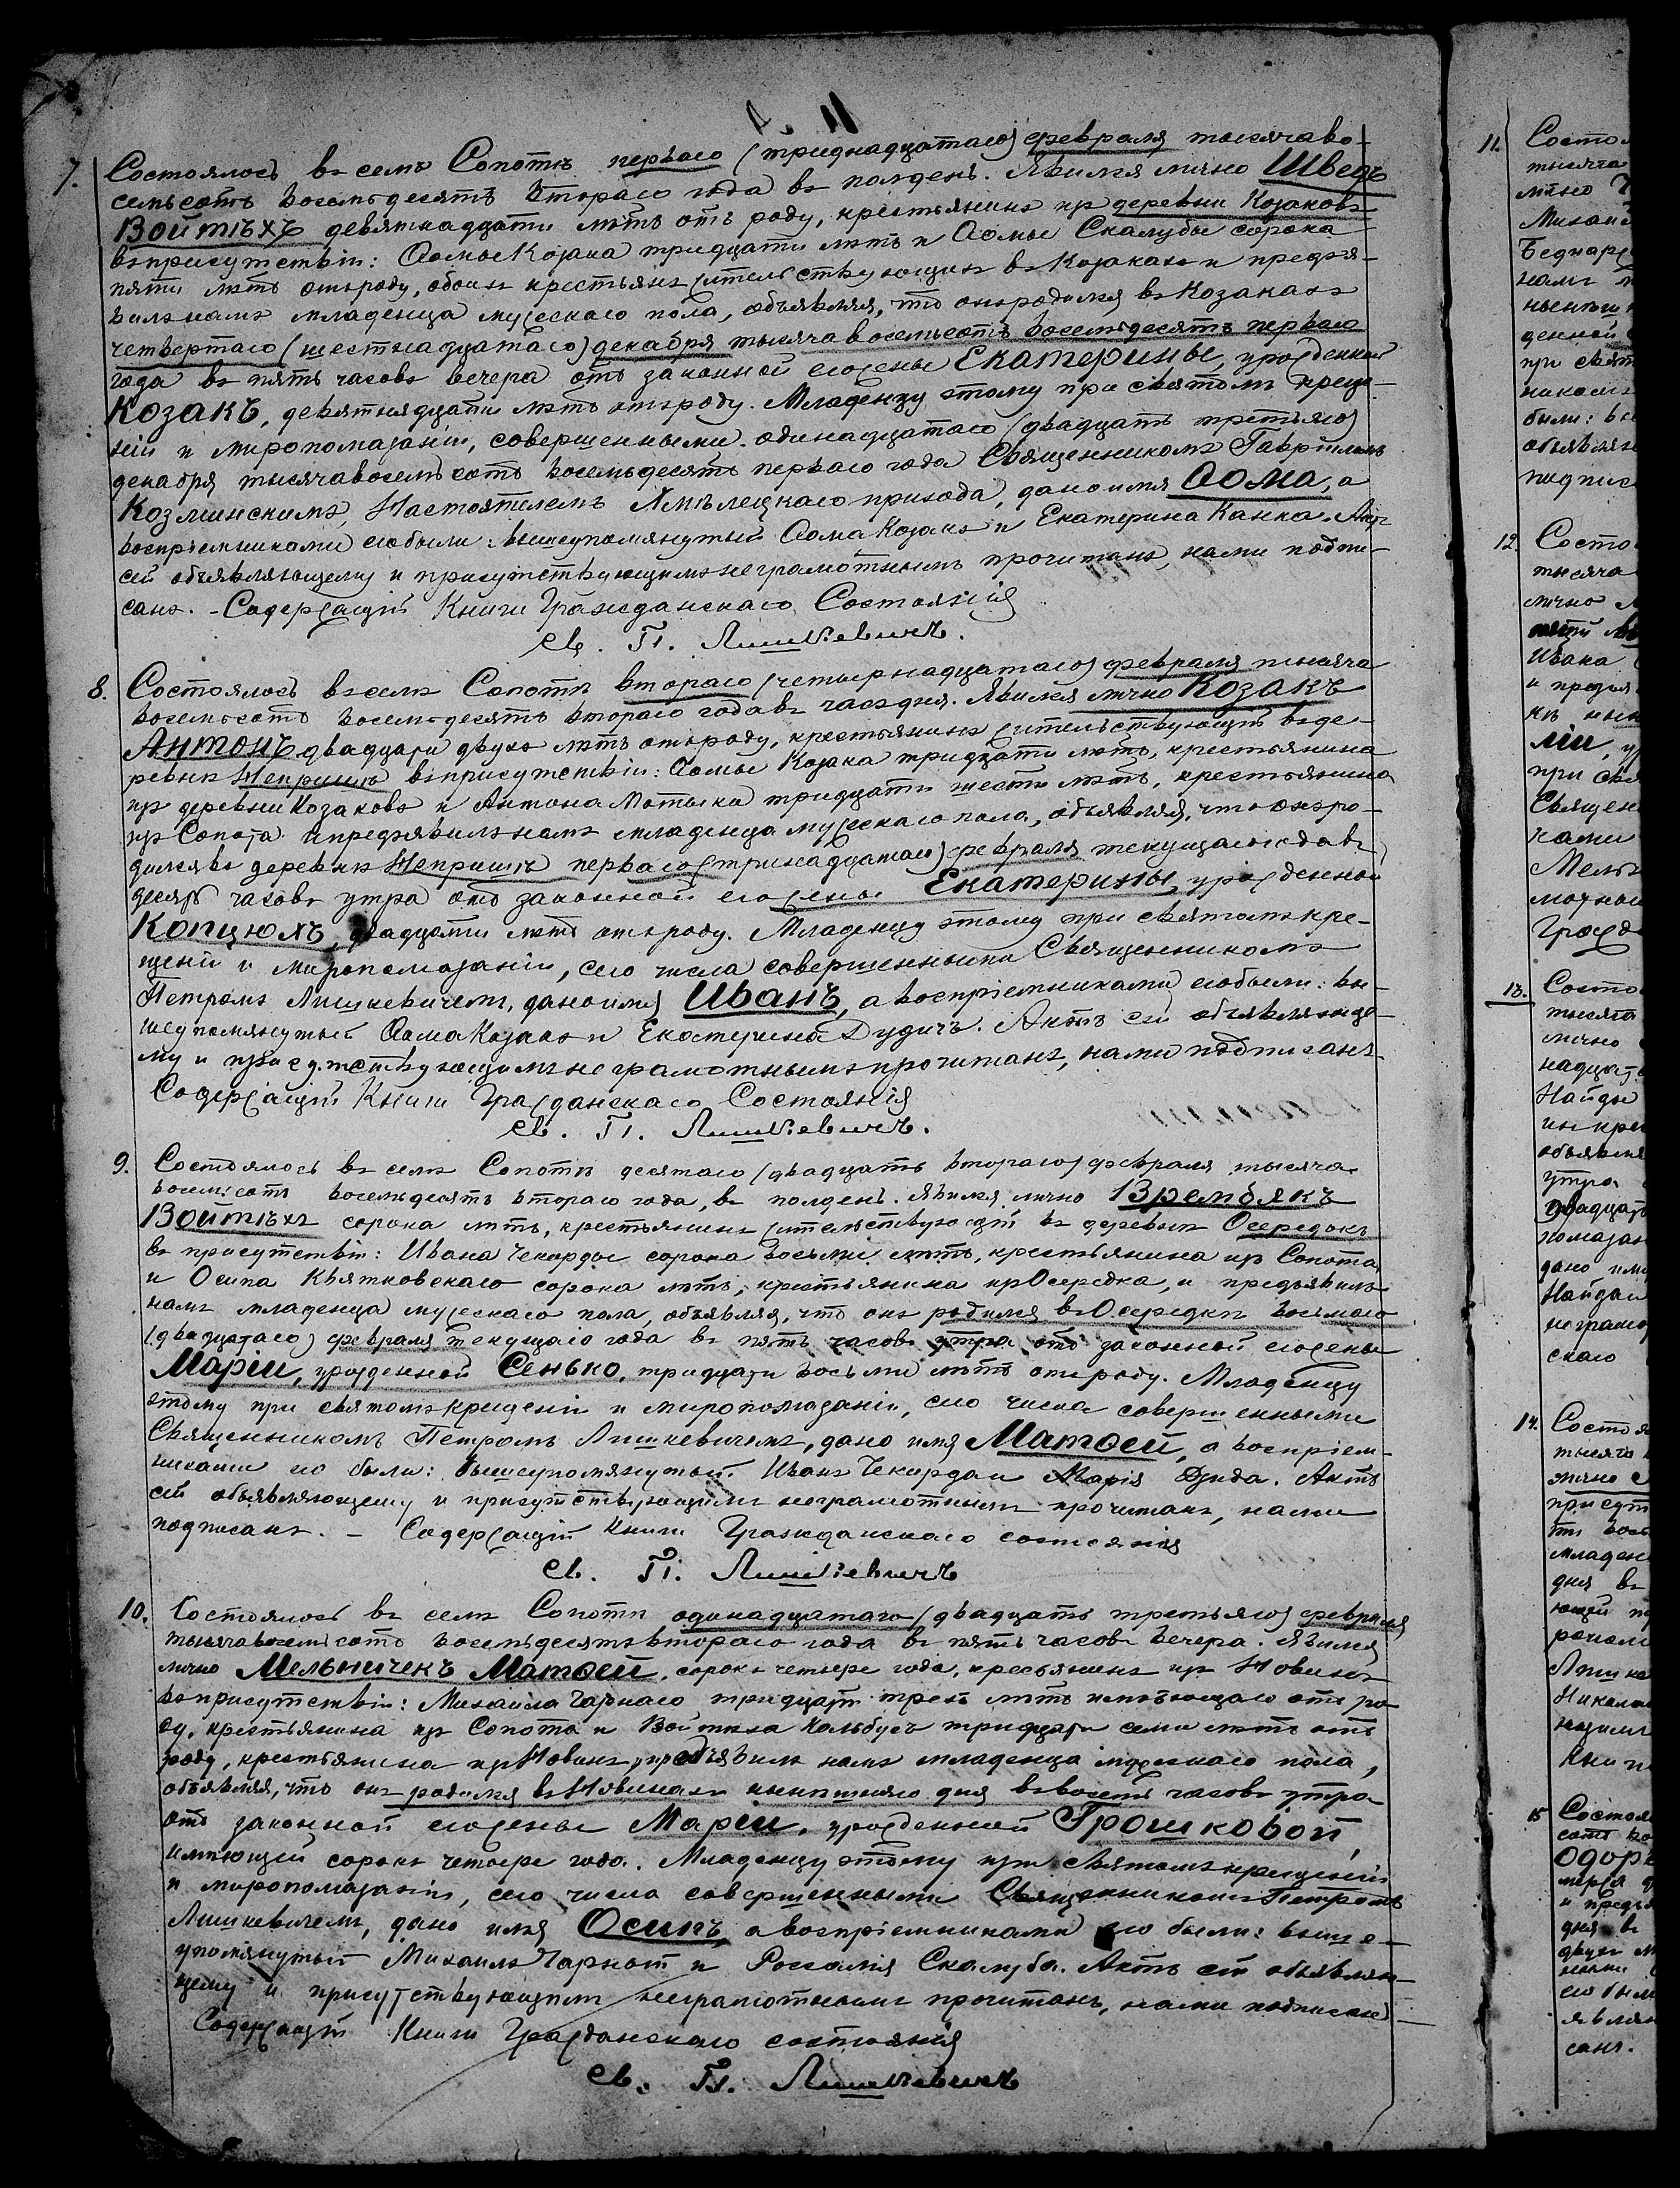 7. Состоялось въ семъ Сопотѣ перваго (тринадцатаго) февраля тысяча во-
семьсотъ восемьдесятъ втораго года въ полдень. Явился лично Шведъ
Войтѣхъ девятнадцати лѣтъ отъ роду, крестьянинъ изъ деревни Козаковъ
въ присутствіи: Ѳомы Козака тридцати лѣтъ и Ѳомы Скалубы сорока
пяти лѣтъ отъ роду, обоихъ крестьянъ жительствующихъ въ Козакахъ и предъя-
вилъ намъ младенца мужескаго пола, объявляя, что онъ родился въ Козакахъ
четвертаго (шестнадцатаго) декабря тысяча восемьсотъ восемьдесятъ перваго
года въ пять часовъ вечера отъ законной его жены Екатерины, урожденной
Козакъ, девятнадцати лѣтъ отъ роду. Младенцу этому при святомъ креще-
ніи и миропомазаніи, совершенными одинадцатаго (двадцать третьяго)
декабря тысяча восемьсотъ восемьдесятъ перваго года Священникомъ Гавріиломъ
Козминскимъ, Настоятелемъ Хмѣлецкаго прихода, дано имя Ѳома, а
воспріемниками его были: вышеупомянутый Ѳома Козакъ и Екатерина Канка. Актъ
сей объявляющему и присутствующимъ неграмотнымъ прочитанъ, нами подпи-
санъ. - Содержащій Книги Гражданскаго Состоянія
Св. П. Лишкевичъ.
8. Состоялось въ селѣ Сопотѣ втораго (четырнадцатаго) февраля тысяча
восемьсотъ восемьдесятъ втораго года въ часъ дня. Явился лично Козакъ
Антонъ двадцати двухъ лѣтъ отъ роду, крестьянинъ жительствующій въ де-
ревнѣ Непришъ въ присутствіи: Ѳомы Козака тридцати лѣтъ, крестьянина
изъ деревни Козаковъ и Антона Мотыка тридцати шести лѣтъ, крестьянина
изъ Сопота и предъявилъ намъ младенца мужескаго пола, объявляя, что онъ ро-
дился въ деревнѣ Непришъ перваго (тринадцатаго) февраля текущаго года въ
десять часовъ утра отъ законной его жены Екатерины, урожденной
Копцюхъ, двадцати лѣтъ отъ роду. Младенцу этому при святомъ кре-
щеніи и миропомазаніи, сего числа совершенными Священникомъ
Петромъ Лишкевичемъ, дано имя Иванъ, а воспріемниками его были: вы-
шеупомянутый Ѳома Козакъ и Екатерина Дудичъ. Актъ сей объявляюще-
му и присутствующимъ неграмотнымъ прочитанъ, нами подписанъ
Содержащій Книги Гражданскаго Состоянія
Св. П. Лишкевичъ.
9. Состоялось въ селѣ Сопотѣ десятаго (двадцать втораго) февраля тысяча
восемьсотъ восемьдесятъ втораго года, въ полдень. Явился лично Врембякъ
Войтѣхъ сорока лѣтъ, крестьянинъ жительствующій въ деревнѣ Осередокъ
въ присутствіи: Ивана Чекирды сорока восьми лѣтъ, крестьянина изъ Сопота
и Осипа Квятковскаго сорока лѣтъ, крестьянина изъ Осередка, и предъявилъ
намъ младенца мужескаго пола, объявляя, что онъ родился въ Осередкѣ восьмаго
(двадцатаго) февраля текущаго года въ пять часовъ утра отъ законной его жены
Маріи, урожденной Сенько, тридцати восьми лѣтъ отъ роду. Младенцу
этому при святомъ крещеніи и миропомазаніи, сего числа совершенными
Священникомъ Петромъ Лишкевичемъ, дано имя Матѳей, а воспріем-
никами его были: вышеупомянутый Иванъ Чекирда и Марія Дзида. Актъ
сей объявляющему и присутствующимъ неграмотнымъ прочитанъ, нами
подписанъ. - Содержащій Книги Гражданскаго состоянія
Св. П. Лишкевичъ
10. Состоялось въ селѣ Сопотѣ одинадцатаго (двадцать третьяго) февраля
тысяча восемьсотъ восемьдесятъ втораго года въ пять часовъ вечера. Явился
лично Мельничекъ Матѳей, сорокъ четыре года, крестьянинъ изъ Новинъ
въ присутствіи: Михаила Чарнаго тридцати трехъ лѣтъ имѣющаго отъ ро-
ду, крестьянина изъ Сопота и Войтѣха Кольбусъ тридцати семи лѣтъ отъ
роду, крестьянина изъ Новинъ, предъявилъ намъ младенца мужескаго пола,
объявляя, что онъ родился въ Новинахъ нынѣшняго дня въ восемь часовъ утра
отъ законной его жены Маріи, урожденной Грошковой,
имѣющей сорокъ четыре года. Младенцу этому при святомъ крещеніи
и миропомазаніи, сего числа совершенными Священникомъ Петромъ
Лишкевичемъ, дано имя Осипъ, а воспріемниками его были: выше-
упомянутый Михаилъ Чарный и Россалія Скалуба. Актъ сей объявляю-
щему и присутствующимъ неграмотнымъ прочитанъ, нами подписанъ
Содержащій Книги Гражданскаго состоянія
Св. П. Лишкевичъ
11. Состоя
тысяча
лично
Михаи
Беднар
намъ
денной
при свят
были: во
объявля
подпис
12. Состо
тысяча
лично
Ивана
и предъя
ліи, у
при свя
Священ
ками
Мель
мотны
Гражд
13. Состо
тысяча
лично
надцат
Найды
объявля
утра
двадцат
помазан
дано имя
Найда и
неграмо
скаго
14. Состоя
тысяча
лично
присут
младен
дня въ
ющей
Лишке
Никола
Книги
15 Состоя
сотъ во
Одор
и предъя
дня въ
двухъ
его были
являю
санъ.